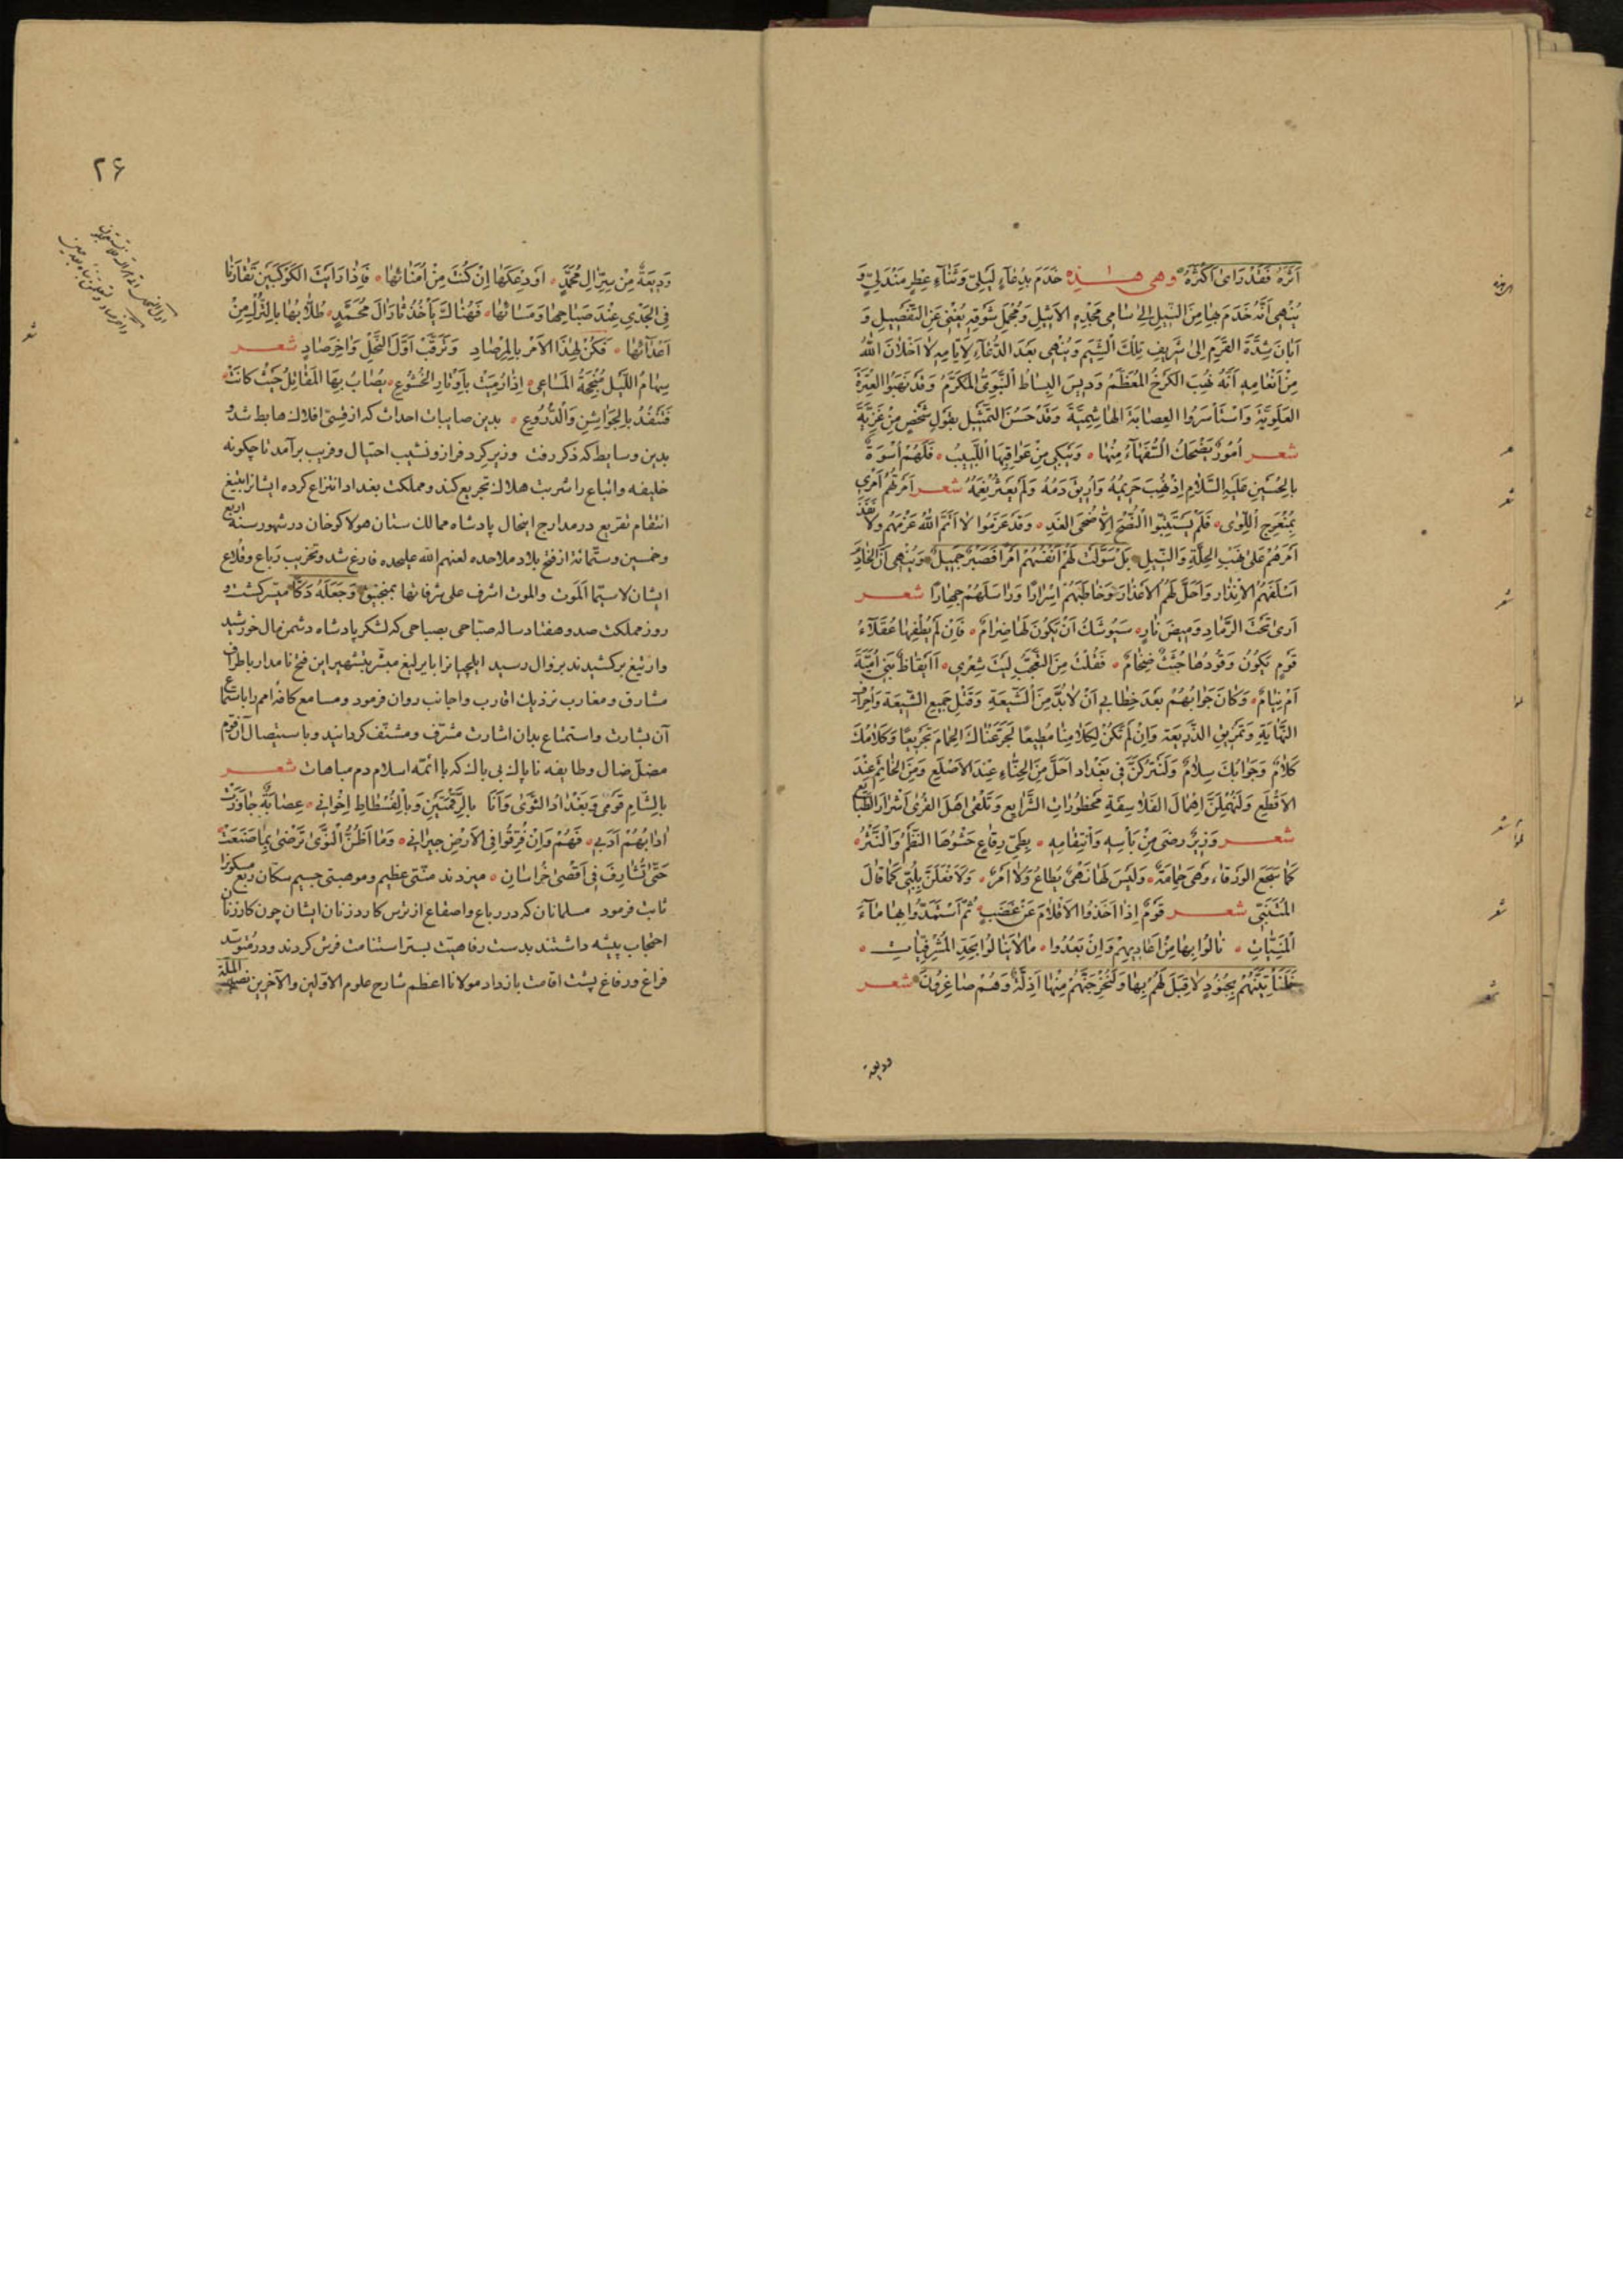 اَثَرَهُ فَقَدْ رَاىٰ اَكْثَرَهُ وهى هــذِه خَدَمَ بِدُعَاءٍ لَيْلِىٍّ وَثَنَاءِ عِطْرٍ مَنْدَلِىٍّ وَ
يُنْهِى اَنَّهُ خَدَمَ بِهَا مِنَ النّيلِ اِلىٰ سَامِى مَجْدِهِ الاَثِيلِ وَمُجْمَلِ شَوْقِهِ يُغْنِى عَنِ التَّفْصِيلِ وَ
اَبَانَ شِدَّةَ القَرَمِ اِلىٰ شَرِيفِ تِلْكَ الشِّيَمِ وَيُنْهِى بَعْدَ الدُّعَاءِ لِاَيَّامِهِ لا اَخْلاهُ اللهُ
مِنْ اَنْعَامِهِ اَنَّهُ نُهِبَ الكَرْخُ المُعَظَّمُ وَدِيسَ البِسَاطُ النَّبَوِىُّ المُكَرَّمُ وَقَدْ نَهَبُوا العِتْرَةَ
العَلَوِيَّةَ وَاسْتَأْسَرُوا العِصَابَةَ الهَاشِمِيَّةَ وَقَدْ حَسُنَ التَّمْثِيلُ بِقَوْلِ شَخْصٍ مِنْ غَزِيَّةَ
شعــر اُمُورٌ يَضْحَكُ السُّفَهَاءُ مِنْهَا وَيَبْكِى مِنْ عَوَاقِبِهَا اللَّبِيبُ فَلَهُمْ اُسْوَةٌ
بِالحُسَيْنِ عَلَيْهِ السَّلَامُ اِذْ نُهِبَ حَرِيمُهُ وَاُرِيقَ دَمُهُ وَلَمْ يَعْثُرْ فَمُهُ شعــر اَمَرْتُهُمْ اَمْرِى
بِمُنْعَرِجِ اللِّوىٰ فَلَمْ يَسْتَبِينُوا النُّصْحَ اِلَّا ضُحَى الغَدِ وَقَدْ عَزَمُوا لا اَتَمَّ اللهُ عَزْمَهُمْ وَلا نَفَّذَ
اَمْرَهُمْ عَلىٰ نَهْبِ الحِلَّةِ وَالنّيلِ بَلْ سَوَّلَتْ لَهُمْ اَنْفُسُهُمْ اَمْرًا فَصَبْرٌ جَمِيلٌ وَيُنْهِى اَنَّ الخَادِمَ
اَسْلَفَهُمُ الاِنْذَارَ وَاَحَلَّ لَهُمُ الاِعْذَارَ وَخَاطَبَهُمْ اِسْرَارًا وَرَاسَلَهُمْ جِهَارًا شعــر
اَرىٰ تَحْتَ الرَّمَادِ وَمِيضَ نَارٍ سَيُوشَكُ اَنْ يَكُونَ لَهَا ضِرَامٌ فَاِنْ لَمْ يُطْفِهَا عُقَلَاءُ
قَوْمٍ يَكُونُ وَقُودُهَا جُثَثٌ ضِخَامٌ فَقُلْتُ مِنَ التَّعَجُّبِ لَيْتَ شِعْرِى اَاَيْقَاظٌ بَنِى اُمَيَّةَ
اَمْ نِيَامٌ وَكَانَ جَوَابُهُمْ بَعْدَ خِطَابِى اَنْ لَابُدَّ مِنَ الشَّنِيعَةِ وَقَتْلِ جَمِيعِ الشِّيعَةِ وَاِحْرَاقِ
النَّهَايَةِ وَتَمْزِيقِ الذَّرِيعَةِ وَاِنْ لَمْ تَكُنْ لِكَلَامِنَا مُطِيعًا لَجَرَّعْنَاكَ الحِمَامَ تَجْرِيعًا وَكَلَامُكَ
كَلَامٌ وَجَوَابُكَ سِلَامٌ وَلَنَتْرُكَنَّ فِى بَغْدَادَ اَحَلَّ مِنَ الحِنَّاءِ عِنْدَ الاَصْلَعِ وَمِنَ الخَاتَمِ عِنْدَ
الاَقْطَعِ وَلَنُهْمِلَنَّ اِهْمَالَ الفَلَاسِفَةِ مَحْظُورَاتِ الشَّرَايِعِ وَتَلْقىٰ اَهْلَ القُرىٰ اَسْرَارَ الطَّبَايِعِ
شعــر وَزِيرٌ رَضِىَ مِنْ بَأْسِهِ وَانْتِقَامِهِ بِطَىِّ رِقَاعٍ حَشْوُهَا النَّظْمُ وَالنَّثْرُ
كَمَا تَسْجَعُ الوَرْقَاءُ وَهِىَ حَمَامَةٌ وَلَيْسَ لَهَا نَهْىٌ يُطَاعُ وَلَا اَمْرٌ وَلَاَفْعَلَنَّ بِلُبِّى كَمَا قَالَ
المُتَنَبِّى شعــر قَوْمٌ اِذَا اَخَذُوا الاَقْلَامَ عَنْ غَضَبٍ ثُمَّ اسْتَمَدُّوا بِهَا مَاءَ
المَنِيَّاتِ نَالُوا بِهَا مِنْ اَعَادِيهِمْ وَاِنْ بَعُدُوا مَا لَا يَنَالُوا بِحَدِّ المُشْرَفِيَّاتِ
فَلَنَأْتِيَنَّهُمْ بِجُنُودٍ لَا قِبَلَ لَهُمْ بِهَا وَلَنُخْرِجَنَّهُمْ مِنْهَا اَذِلَّةً وَهُمْ صَاغِرُونَ شعــر
وديعة
۲۶
وَدِيعَةٌ مِنْ سِرِّ اٰلِ مُحَمَّدٍ اَوْدِعْكَهَا اِنْ كُنْتَ مِنْ اُمَنَائِهَا فَاِذَا رَاَيْتَ الكَوْكَبَيْنِ تَقَارَنَا
فِى الجَدْىِ عِنْدَ صَبَاحِهَا وَمَسَائِهَا فَهُنَاكَ يَأْخُذُ ثَارَ اٰلِ مُحَمَّدٍ طُلَّابُهَا بِالتُّرْكِ مِنْ
اَعْدَائِهَا فَكُنْ لِهٰذَا الاَمْرِ بِالمِرْصَادِ وَتَرَقَّبْ اَوَّلَ النَّحْلِ وَاٰخِرَ صَادٍ شعــر
سِهَامُ اللَّيْلِ مُنْجِحَةُ المَسَاعِى اِذَا رُمِيَتْ بِاَوْتَارِ الخُشُوعِ يُصَابُ بِهَا المَقَاتِلُ حَيْثُ كَانَتْ
فَتَنْفُذُ بِالجَوَاشِنِ وَالدُّرُوعِ بدين صايبات احداث كه از قسىّ افلاك هابط شد و
بدين وسايط كه ذكر رفت وزير كرد فراز و نشيب احتيال و فريب برآمد تا چكونه
خليفه و اتباع را شربت هلاك تجريع كند و مملكت بغداد انتزاع كرده ايشانرا بتيغ
انتقام تقريع در مدارج اينحال پادشاه ممالك ستان هولاكو خان در شهور سنه اربع
وخمسين وستّمائة از فتح بلاد ملاحده لعنهم الله عليحده فارغ شد و تخريب رباع و قلاع
ايشان لاسيّما اَلَموت والموت اشرف على شرفاتها بمنجنيق وَجَعَلَهُ دَكًّا ميسّر كشت و
روز مملكت صد و هفتاد ساله صبّاحى بصباحى كه لشكر پادشاه دشمن مال خورشيد
وار تيغ بركشيدند بزوال رسيد ايلچيانرا با يرليغ مبشّر بتشهير اين فتح نامدار باطراف
مشارق و مغارب نزديك اقارب و اجانب روان فرمود و مسامع كافهٔ امم را باستماع
آن بشارت و استمتاع بدان اشارت مشرّف و مشنّف كردانيد و باستيصال آن قوم
مضلّ ضال و طايفه ناپاك بى باك كه با ائمّه اسلام دم مباهات شعــر
بِالشَّامِ قَوْمِى وَبَغْدَادُ الثَّوىٰ وَاَنَا بِالرَّقْمَتَيْنِ وَبِالفُسْطَاطِ اِخْوَانِى عِصَابَةٌ جَاوَرَتْ
اٰدَابُهُمْ اَدَبِى فَهُمْ وَاِنْ فُرِّقُوا فِى الاَرْضِ جِيرَانِى وَمَا اَظُنُّ النَّوىٰ تَرْضىٰ بِمَا صَنَعَتْ
حَتّىٰ تُشَارِفَ فِى اَقْصىٰ خُرَاسَانِ ميزدند منّتى عظيم و موهبتى جسيم سكّان ربع مسكونرا
ثابت فرمود مسلمانان كه در رباع و اصقاع از ترس كارد زنان ايشان چون كارزنان
احتجاب پيشه داشتند بدست رفاهيت بستر استنامت فرش كردند و در متوسّد
فراغ ورفاغ پشت اقامت باز داد مولانا اعظم شارح علوم الاوّلين والآخرين نصير الملّة